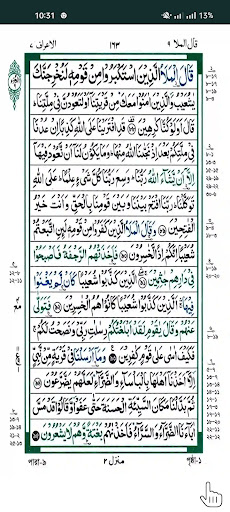 10:31
13%
قال الملا ٩
١٦٣
الاعراف ٧
قَالَ الْمَلَاُ الَّذِيْنَ اسْتَكْبَرُوْا مِنْ قَوْمِهٖ لَنُخْرِجَنَّكَ
يٰشُعَيْبُ وَالَّذِيْنَ اٰمَنُوْا مَعَكَ مِنْ قَرْيَتِنَاۤ اَوْ لَتَعُوْدُنَّ فِيْ مِلَّتِنَا
قَالَ اَوَلَوْ كُنَّا كٰرِهِيْنَ ۝٨٨ قَدِ افْتَرَيْنَا عَلَى اللّٰهِ كَذِبًا اِنْ عُدْنَا
فِيْ مِلَّتِكُمْ بَعْدَ اِذْ نَجّٰىنَا اللّٰهُ مِنْهَا وَمَا يَكُوْنُ لَنَاۤ اَنْ نَّعُوْدَ فِيْهَاۤ
اِلَّاۤ اَنْ يَّشَآءَ اللّٰهُ رَبُّنَا وَسِعَ رَبُّنَا كُلَّ شَيْءٍ عِلْمًا عَلَى اللّٰهِ
تَوَكَّلْنَا رَبَّنَا افْتَحْ بَيْنَنَا وَبَيْنَ قَوْمِنَا بِالْحَقِّ وَاَنْتَ خَيْرُ
الْفٰتِحِيْنَ ۝٨٩ وَقَالَ الْمَلَاُ الَّذِيْنَ كَفَرُوْا مِنْ قَوْمِهٖ لَئِنِ اتَّبَعْتُمْ
شُعَيْبًا اِنَّكُمْ اِذًا لَّخٰسِرُوْنَ ۝٩٠ فَاَخَذَتْهُمُ الرَّجْفَةُ فَاَصْبَحُوْا
فِيْ دَارِهِمْ جٰثِمِيْنَ ۝٩١ الَّذِيْنَ كَذَّبُوْا شُعَيْبًا كَاَنْ لَّمْ يَغْنَوْا
فِيْهَا الَّذِيْنَ كَذَّبُوْا شُعَيْبًا كَانُوْا هُمُ الْخٰسِرِيْنَ ۝٩٢ فَتَوَلّٰى
عَنْهُمْ وَقَالَ يٰقَوْمِ لَقَدْ اَبْلَغْتُكُمْ رِسٰلٰتِ رَبِّيْ وَنَصَحْتُ لَكُمْ
فَكَيْفَ اٰسٰى عَلٰى قَوْمٍ كٰفِرِيْنَ ۝٩٣ وَمَاۤ اَرْسَلْنَا فِيْ قَرْيَةٍ مِّنْ نَّبِيٍّ
اِلَّاۤ اَخَذْنَاۤ اَهْلَهَا بِالْبَاْسَآءِ وَالضَّرَّآءِ لَعَلَّهُمْ يَضَّرَّعُوْنَ ۝٩٤
ثُمَّ بَدَّلْنَا مَكَانَ السَّيِّئَةِ الْحَسَنَةَ حَتّٰى عَفَوْا وَّقَالُوْا قَدْ مَسَّ
اٰبَآءَنَا الضَّرَّآءُ وَالسَّرَّآءُ فَاَخَذْنٰهُمْ بَغْتَةً وَّهُمْ لَا يَشْعُرُوْنَ ۝٩٥
পারা-৯
منزل ٢
পৃষ্ঠা-১